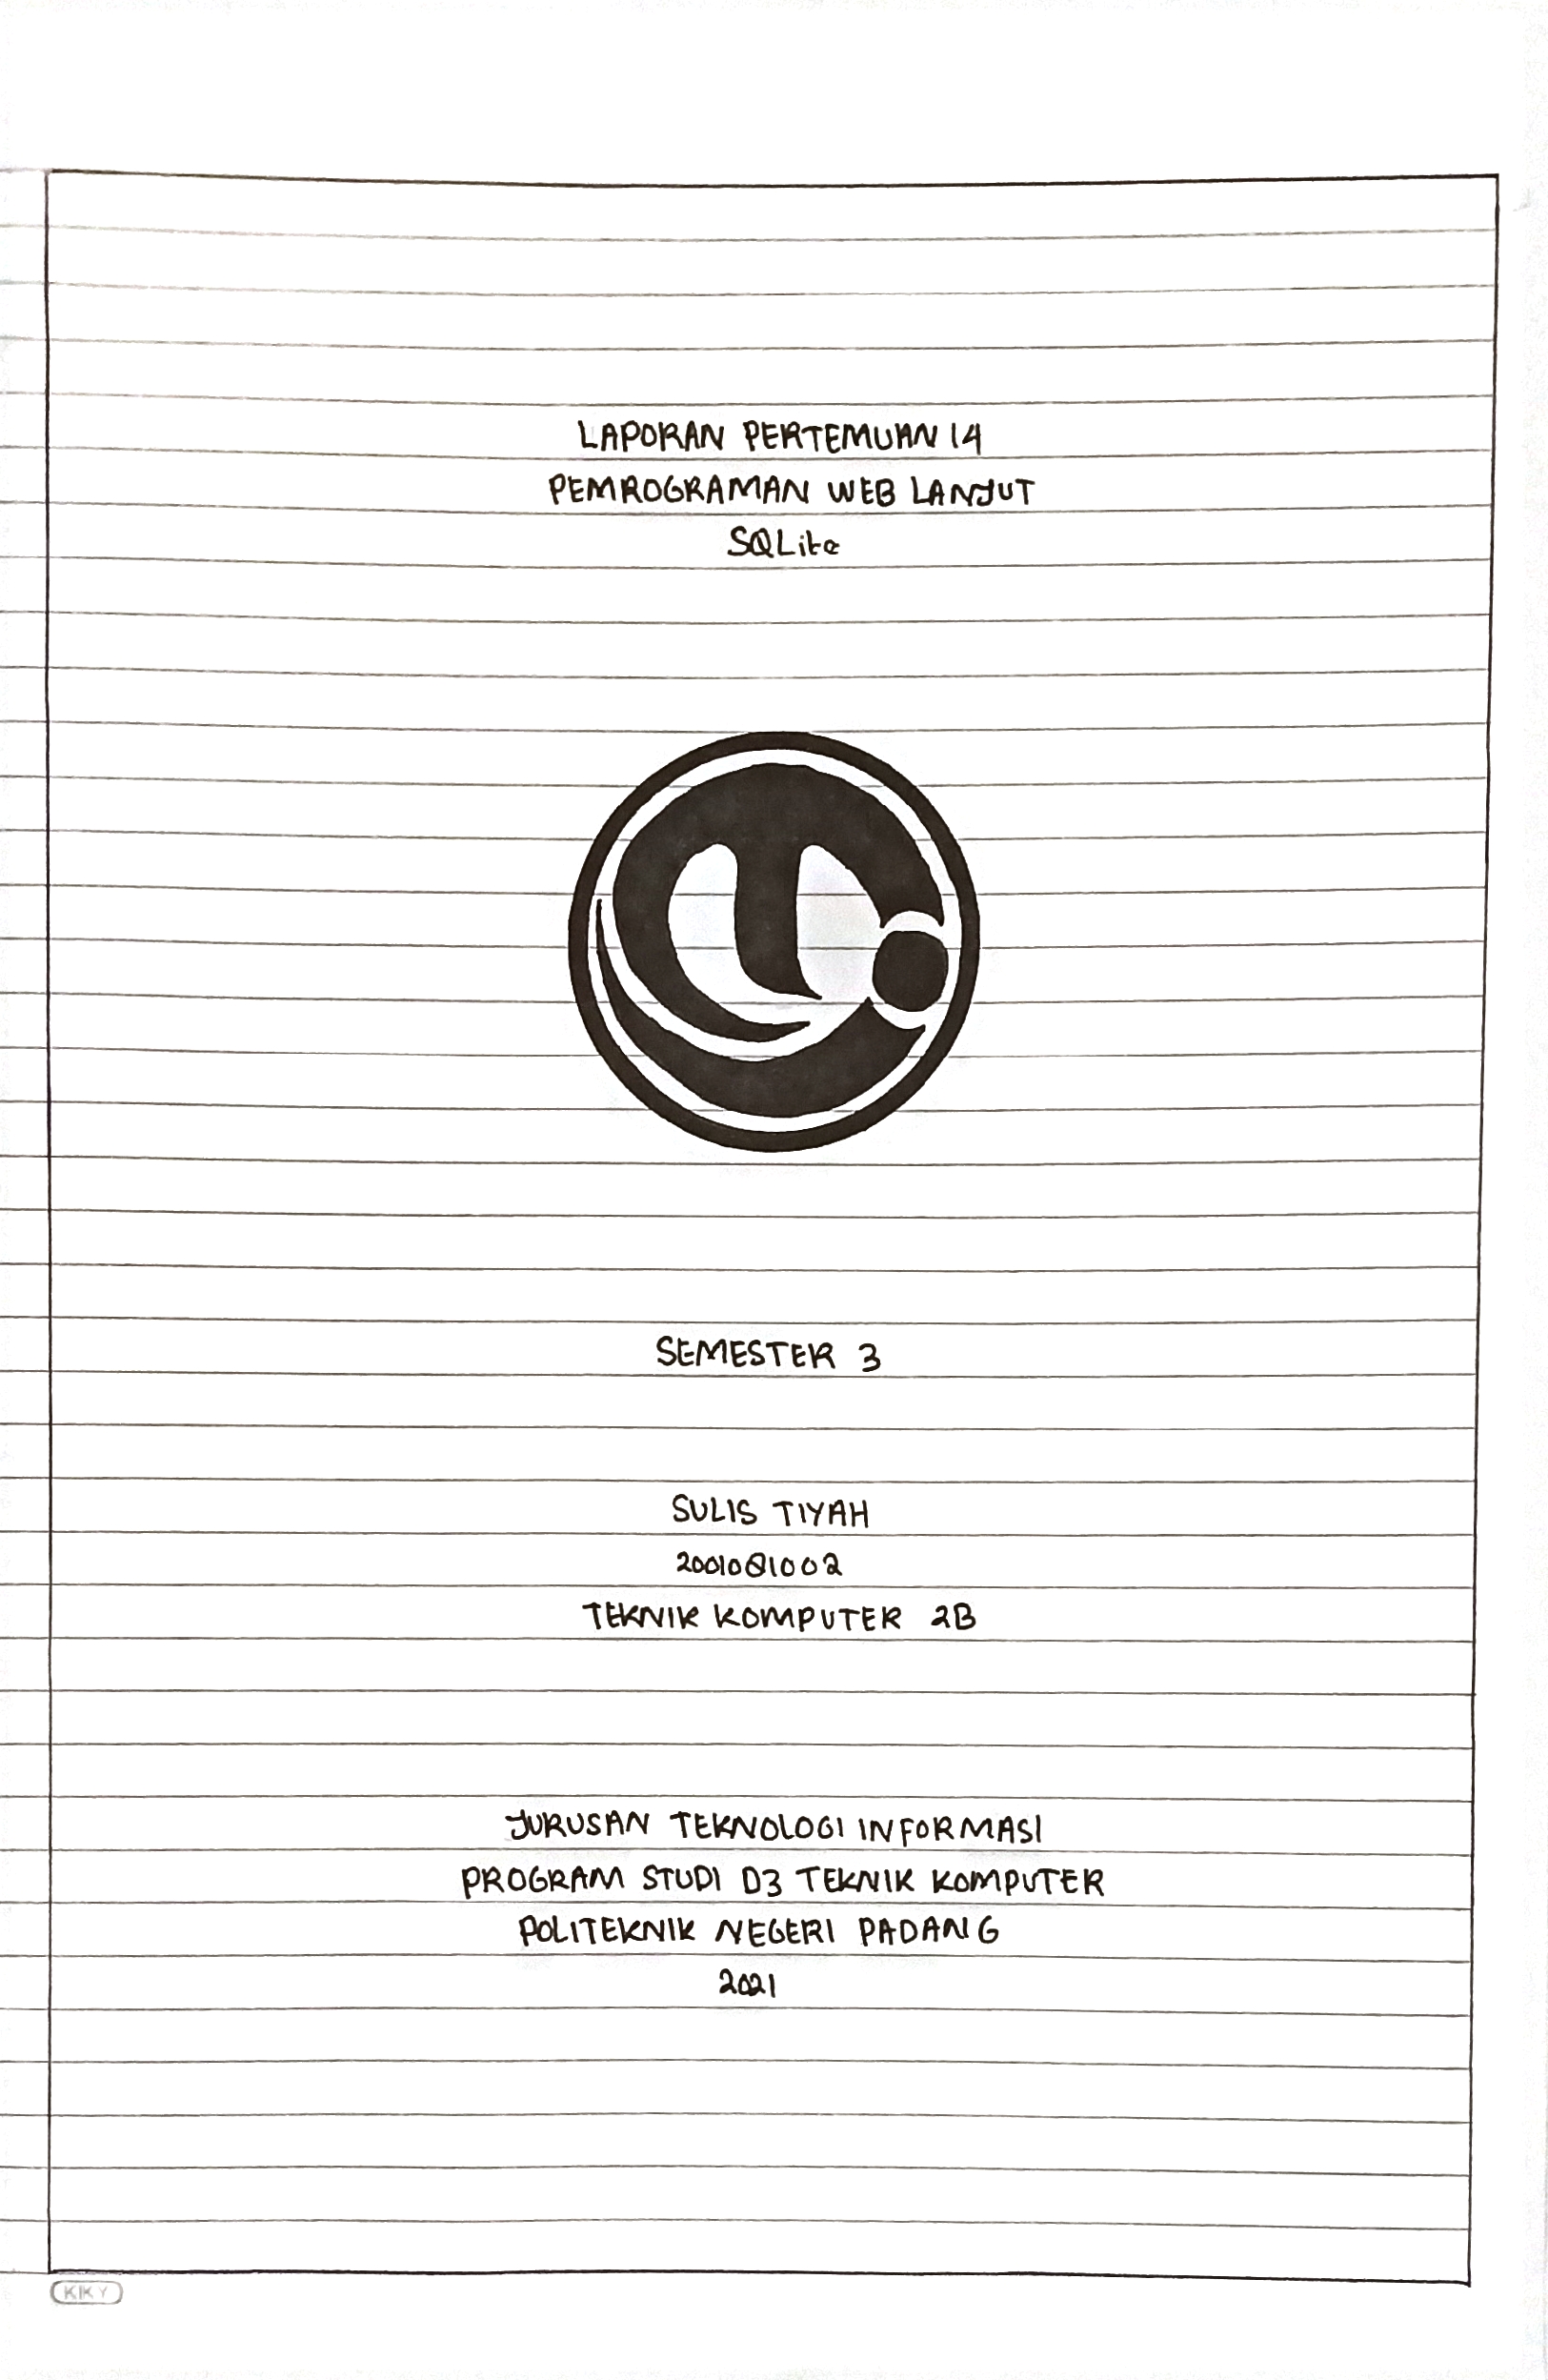 LAPORAN PERTEMUAN 14
PEMROGRAMAN WEB LANJUT
SQLite
SEMESTER 3
SULIS TIYAH
2001081002
TEKNIK KOMPUTER 2B
JURUSAN TEKNOLOGI INFORMASI
PROGRAM STUDI D3 TEKNIK KOMPUTER
POLITEKNIK NEGERI PADANG
2021
KIKY